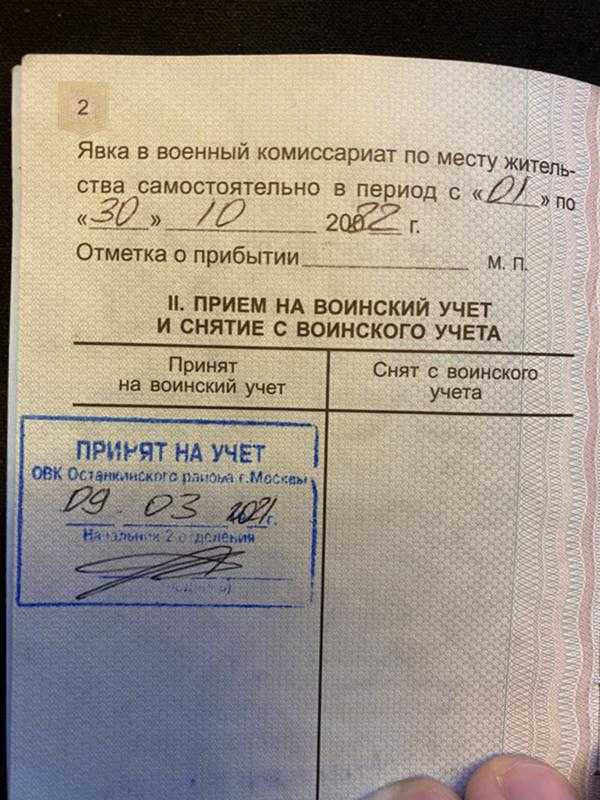 2
Явка в военный комиссариат по месту житель-
ства самостоятельно в период с «01» по
«30» 10 200 22 г.
Отметка о прибытии М. П.
II. ПРИЕМ НА ВОИНСКИЙ УЧЕТ
И СНЯТИЕ С ВОИНСКОГО УЧЕТА
Принят
на воинский учет
Снят с воинского
учета
ПРИНЯТ НА УЧЕТ
ОВК Останкинского района г.Москвы
09. 03 2021 г.
Начальник 2 отделения